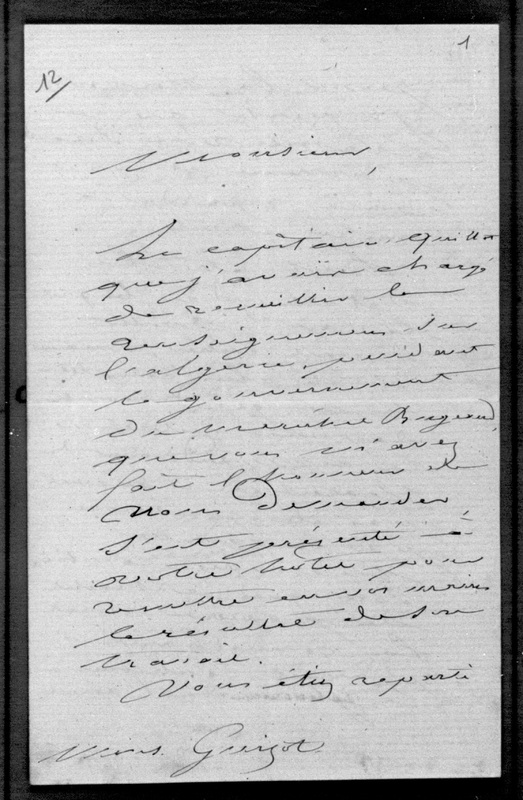 12/
1
Monsieur,
Le capitaine
que j'avais chargé
de recueillir les
renseignemens sur
l'algérie, pendant
le gouvernement
du maréchal Bugeaud,
que vous m'avez
fait l'honneur de
nous demander,
s'est présenté à
votre hôtel pour
remettre en vos mains
le résultat de son
travail.
Vous étiez reparti
Mons. Guizot